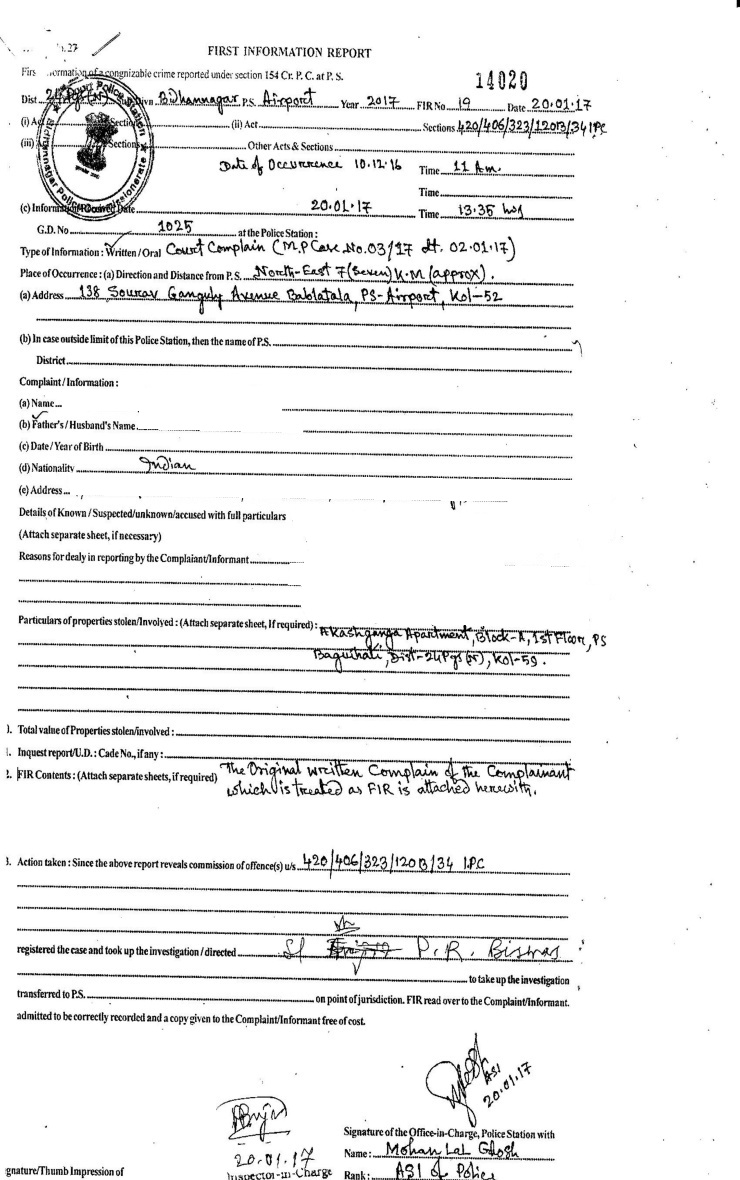 FIRST INFORMATION REPORT
First Information of a congnizable crime reported under section 154 Cr. P. C. at P. S.
14020
Dist. 24 Pgs (N) Sub Divn. Bidhannagar, P.S. Airport Year 2017 FIR No. 19 Date 20.01.17
(i) Act Sections (ii) Act Sections 420/406/323/120B/34 IPC
(iii) Sections Other Acts & Sections
Date of Occurrence 10.12.16 Time 11 Am.
Time
(c) Information Received Date 20.01.17 Time 13.35 hrs
G.D. No. 1025 at the Police Station :
Type of Information : Written / Oral Court Complain (M.P Case No. 03/17 dt. 02.01.17)
Place of Occurrence : (a) Direction and Distance from P.S. North-East 7 (Seven) K.M (approx).
(a) Address 138 Sourav Ganguly Avenue Bablatala, PS-Airport, Kol-52
(b) In case outside limit of this Police Station, then the name of P.S.
District
Complaint / Information :
(a) Name
(b) Father's / Husband's Name
(c) Date / Year of Birth
(d) Nationality Indian
(e) Address
Details of Known / Suspected/unknown/accused with full particulars
(Attach separate sheet, if necessary)
Reasons for dealy in reporting by the Complaiant/Informant
Particulars of properties stolen/Involved : (Attach separate sheet, If required) : Akashganga Apartment, Block-A, 1st Floor, PS
Baguihati, Dist-24 Pgs (N), Kol-59.
). Total value of Properties stolen/involved :
. Inquest report/U.D. : Cade No., if any :
2. FIR Contents : (Attach separate sheets, if required) The Original written Complain of the Complainant
which is treated as FIR is attached herewith.
3. Action taken : Since the above report reveals commission of offence(s) u/s 420/406/323/120B/34 I.P.C
registered the case and took up the investigation / directed SI P. R. Biswas
to take up the investigation
transferred to P.S. on point of jurisdiction. FIR read over to the Complaint/Informant.
admitted to be correctly recorded and a copy given to the Complaint/Informant free of cost.
ASI
20.01.17
Signature of the Office-in-Charge, Police Station with
20.01.17
Name : Mohan Lal Ghosh
Inspector-in-Charge
gnature/Thumb Impression of
Rank : ASI of Police